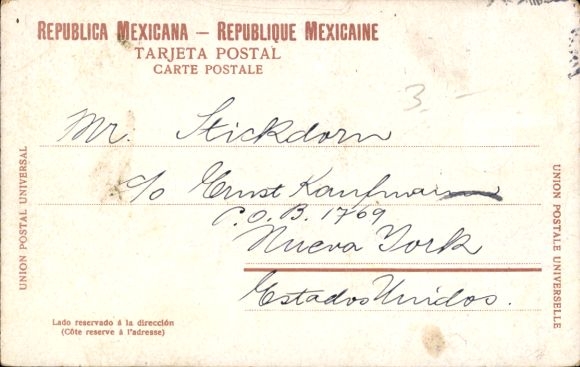 REPUBLICA MEXICANA — REPUBLIQUE MEXICAINE
TARJETA POSTAL
CARTE POSTALE
3.—
Mr. Stickdorn
c/o Ernst Kaufmann
P.O.B. 1769
Nueva York
Estados Unidos.
UNION POSTAL UNIVERSAL
UNION POSTALE UNIVERSELLE
Lado reservado á la dirección
(Côte reserve à l'adresse)